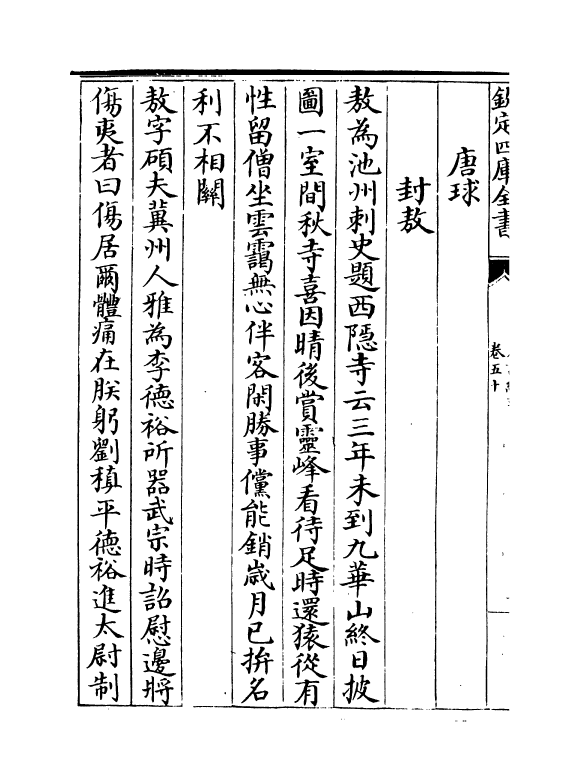 欽定四庫全書
卷五十
唐球
封敖
敖為池州刺史題西隱寺云三年未到九華山終日披
圖一室間秋寺喜因晴後賞靈峰看待足時還猿從有
性留僧坐雲靄無心伴客閑勝事儻能銷歲月已拚名
利不相關
敖字碩夫冀州人雅為李德裕所器武宗時詔慰邊將
傷夷者曰傷居爾體痛在朕躬劉稹平德裕進太尉制